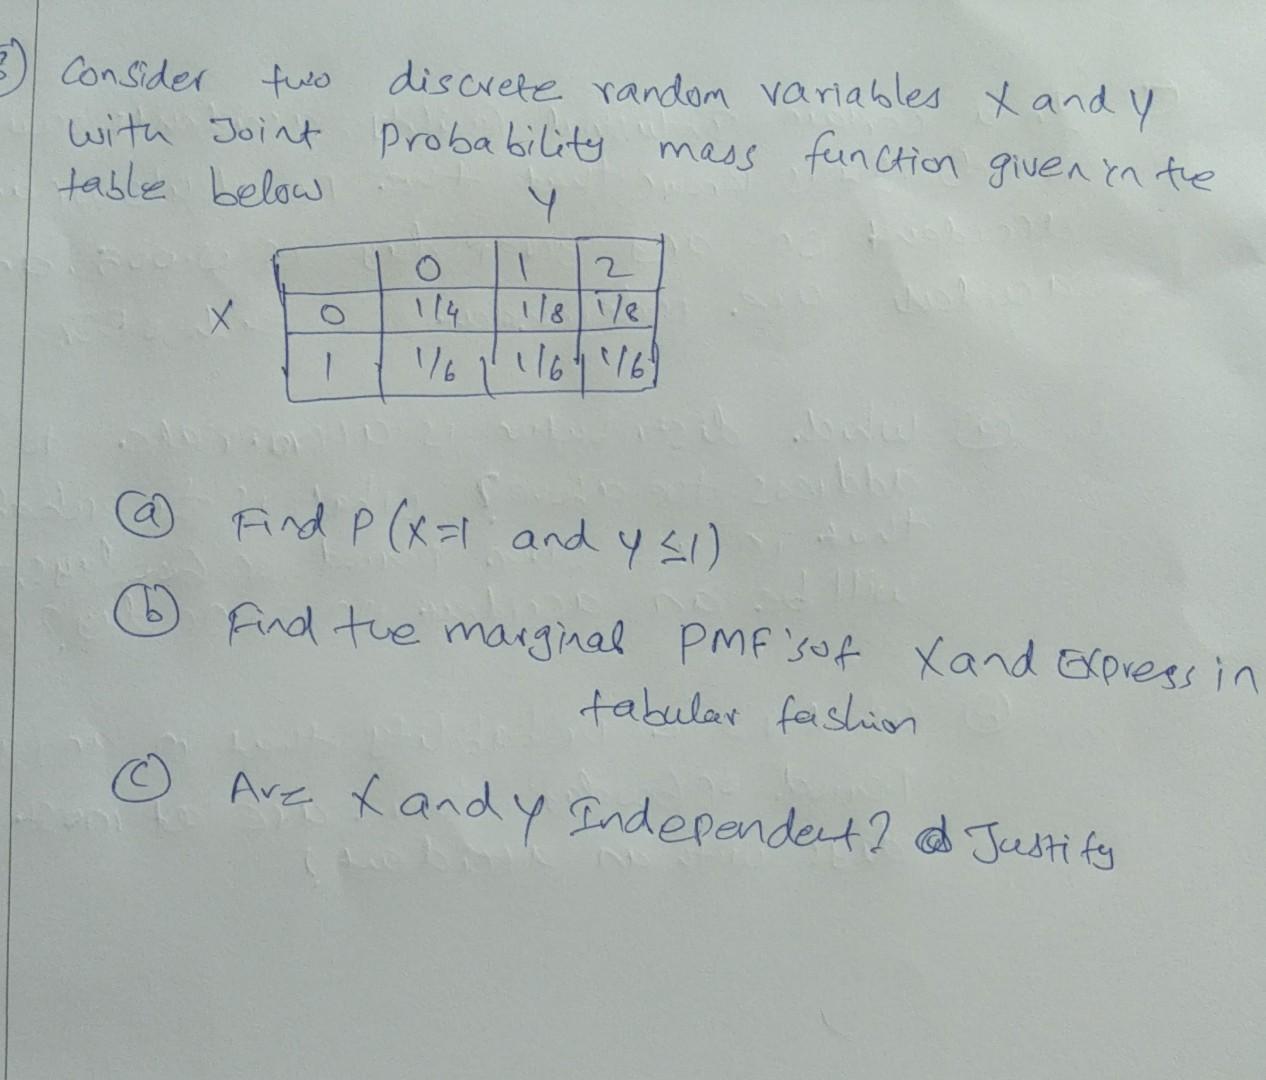 Consider two discrete random variables X and Y
with Joint Probability mass function given in the
table below
Y
0 1 2
X 0 1/4 1/8 1/8
1 1/6 1/6 1/6
(a) Find P(X=1 and y ≤1)
(b) Find the marginal PMF's of X and Express in
tabular fashion
(c) Are X and y Independent? Justify